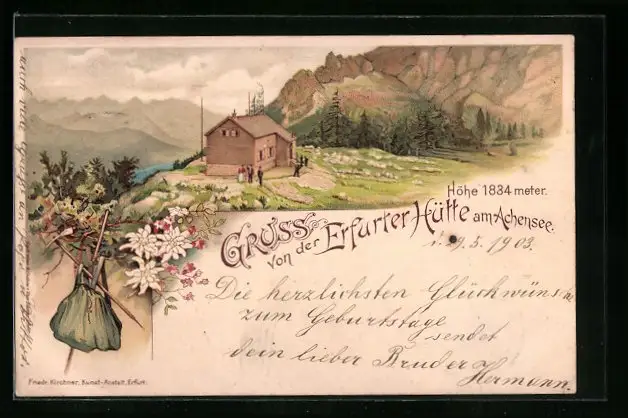 Höhe 1834 meter.
GRUSS von der Erfurter Hütte am Achensee.
9.5.1903.
Die herzlichsten Glückwünsche
zum Geburtstage
sendet
dein lieber Bruder
Hermann.
Friedr. Kirchner, Kunst-Anstalt, Erfurt.